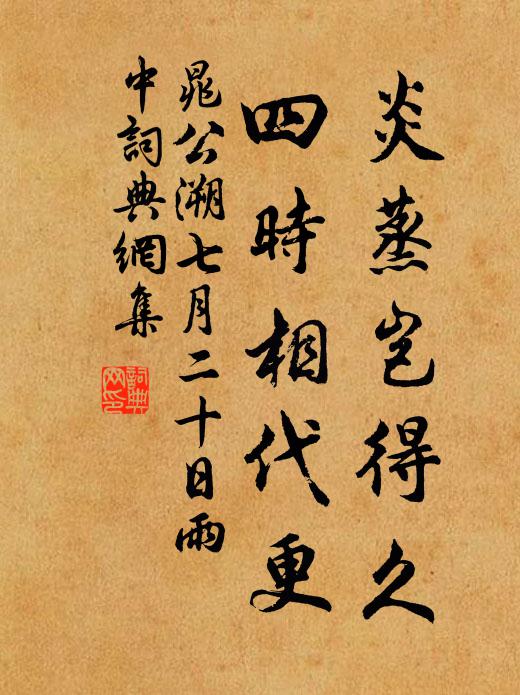 炎蒸豈得久
四時相代更
晁公溯七月二十日雨
中詞典網集
詞典
网印